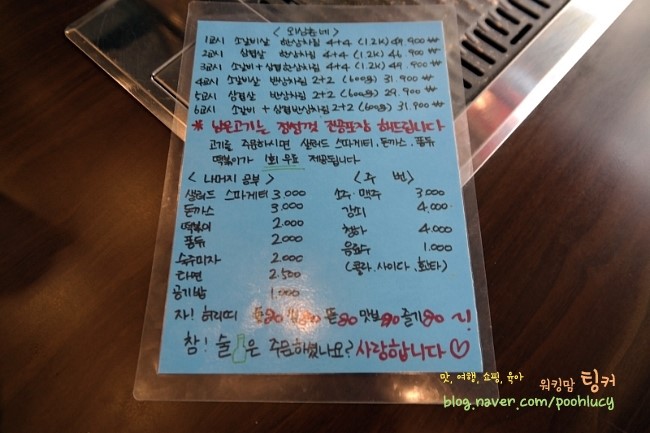 1교시 소갈비살 한상차림 4+4 (1.2K) 49.900₩
2교시 삼겹살 한상차림 4+4 (1.2K) 46.900₩
3교시 소갈비+삼겹한상차림 4+4 (1.2K) 49.900₩
4교시 소갈비살 반상차림 2+2 (600g) 31.900₩
5교시 삼겹살 반상차림 2+2 (600g) 29.900₩
6교시 소갈비+삼겹반상차림 2+2 (600g) 31.900₩
* 남은고기는 정성껏 진공포장 해드립니다
고기를 주문하시면 샐러드 스파게티, 돈까스, 퐁듀
떡볶이가 1회 무료 제공됩니다
<나머지 공부> <주 번>
샐러드 스파게티 3.000 소주·맥주 3.000
돈까스 3.000 4.000
떡볶이 2.000 청하 4.000
퐁듀 2.000 음료수 1.000
숙주미자 2.000 (콜라, 사이다, 환타)
라면 2.500
공기밥 1.000
자! 허리띠 풀go 돈go 맛보go 즐기go ~!
참! 술은 주문하셨나요? 사랑합니다♡
맛, 여행, 쇼핑, 육아
워킹맘 팅커
blog.naver.com/poohlucy